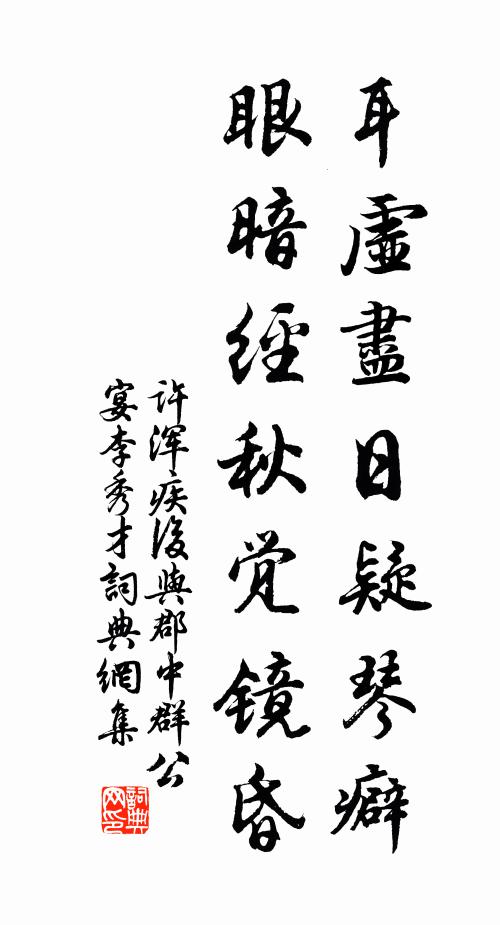 耳虛盡日疑琴癖
眼暗經秋觉镜昏
许浑疾後與郡中群公
宴李秀才詞典網集
詞典网印